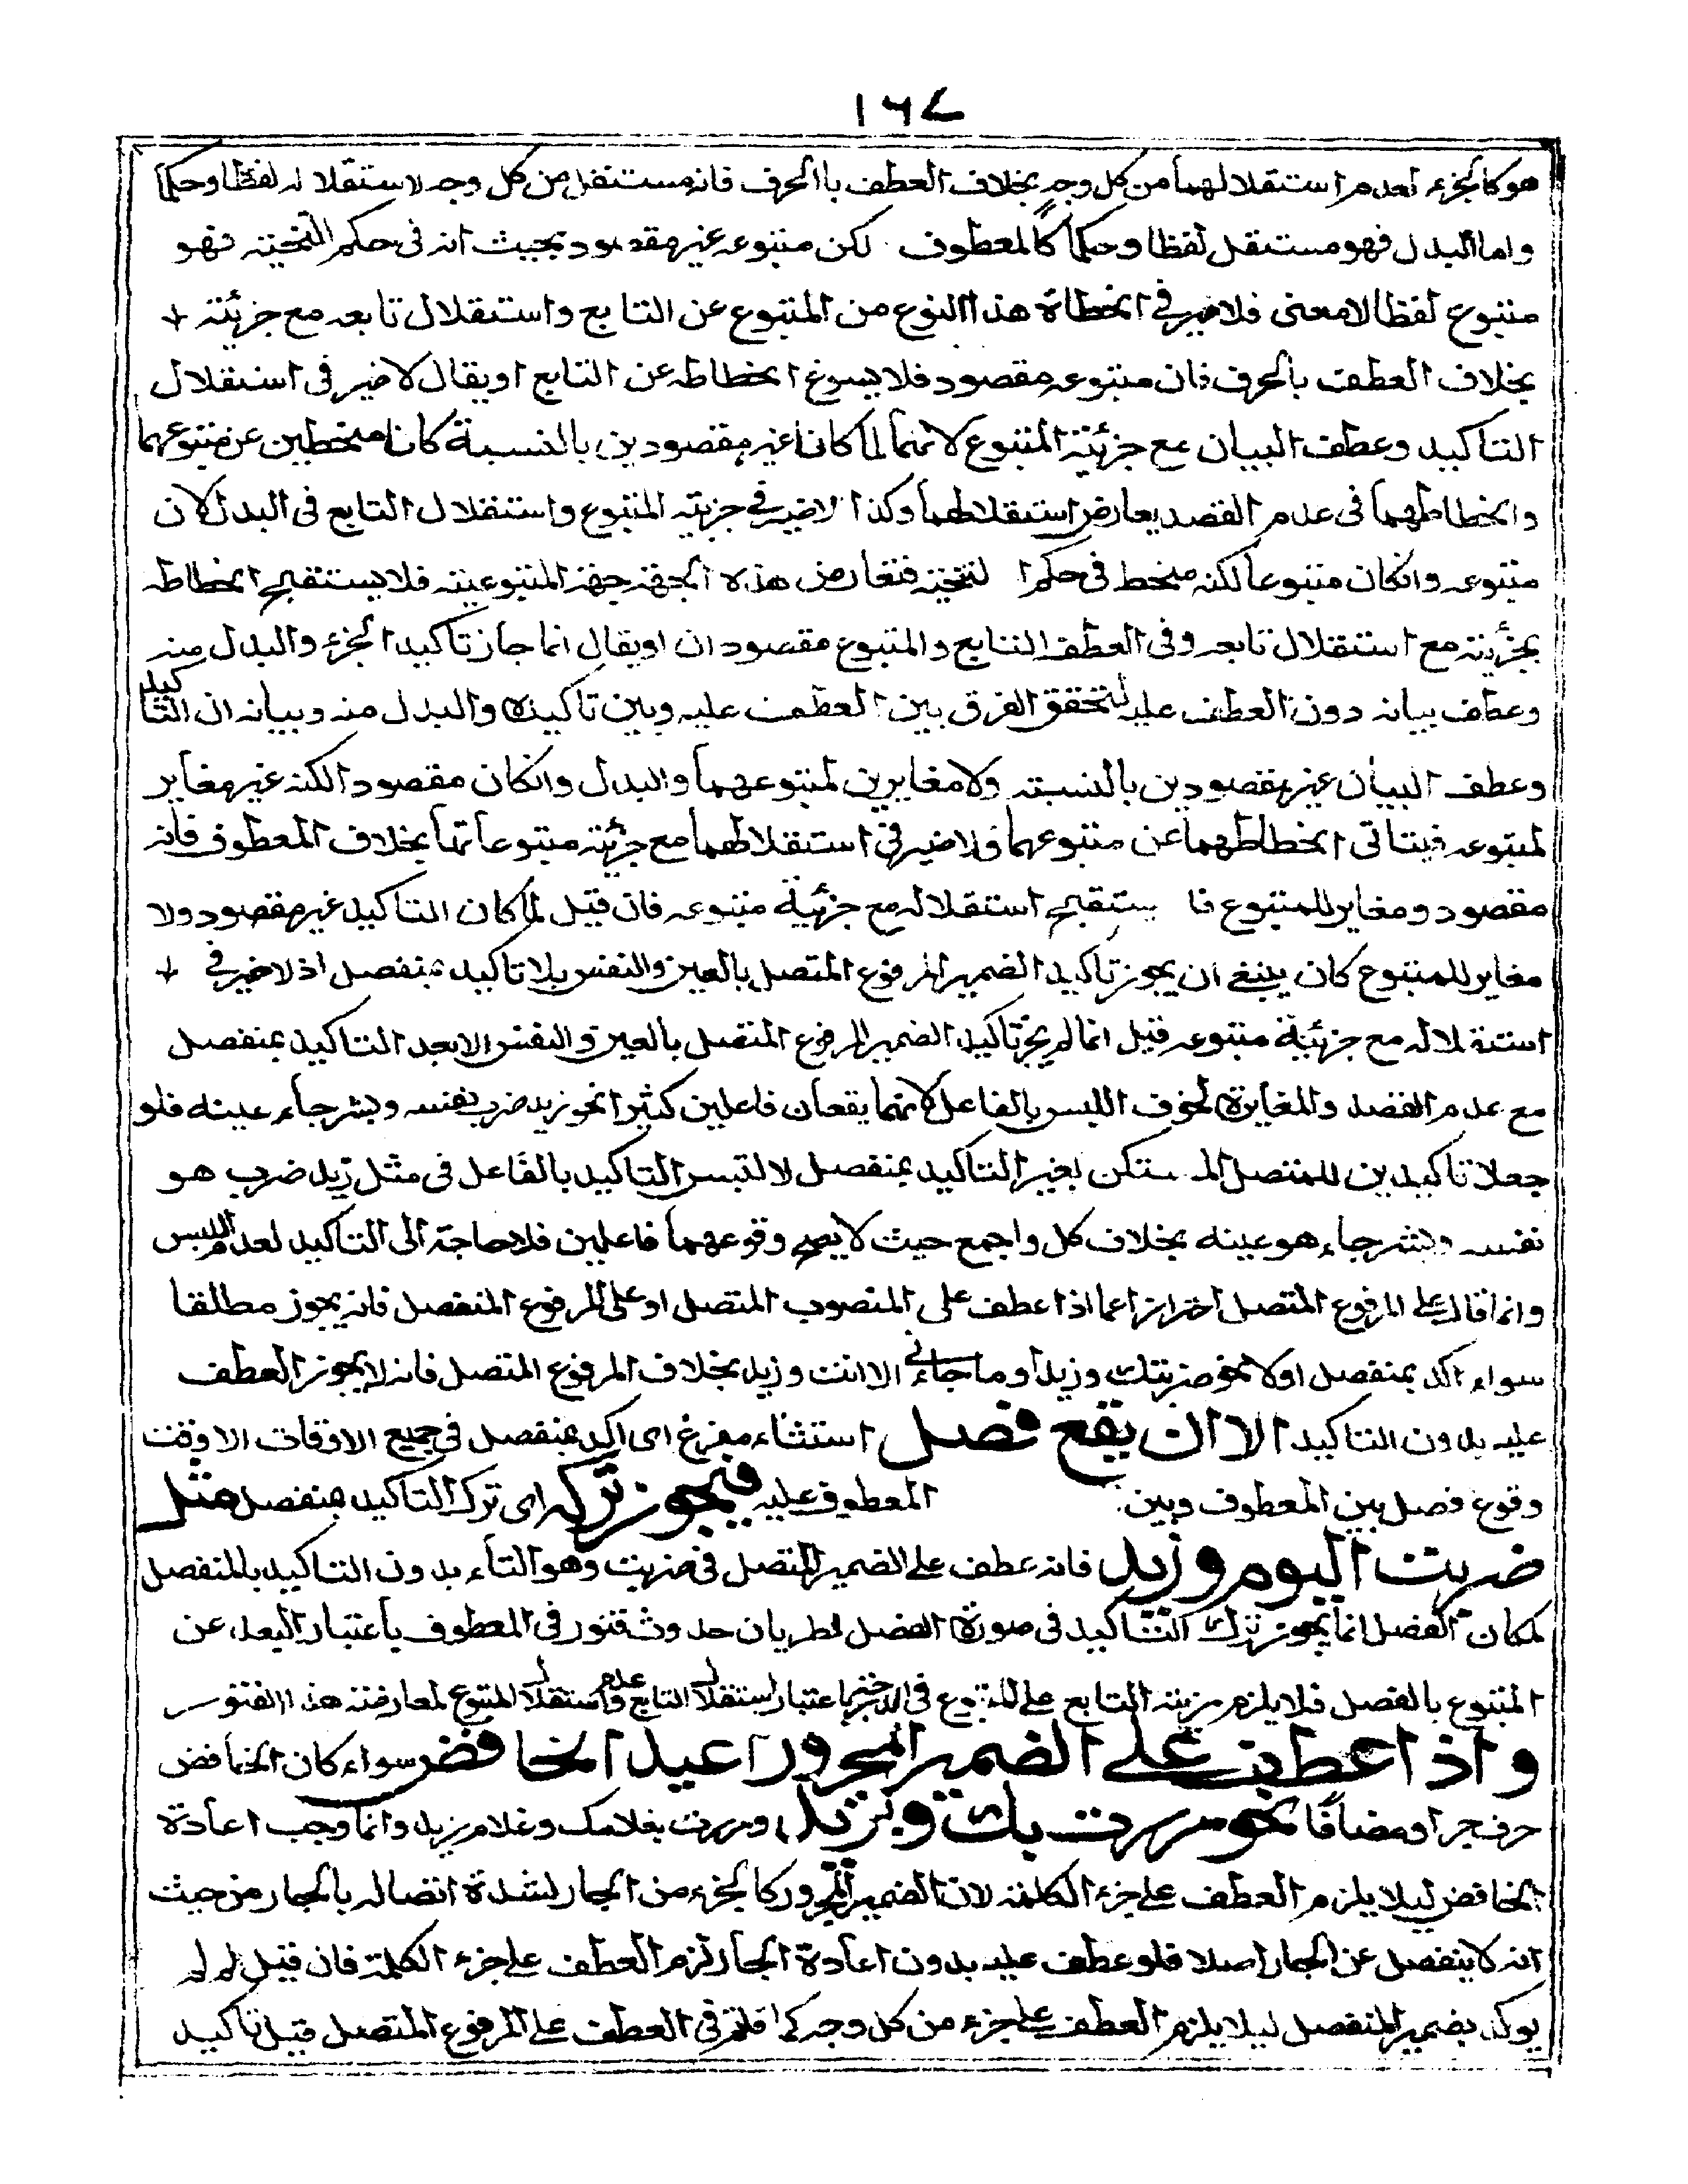 ١٦٧
هو كالجزء لعدم استقلالهما من كل وجه بخلاف العطف با الحرف فانه مستقل من كل وجه لاستقلاله لفظا وحكما
واما البدل فهو مستقل لفظا وحكما كالمعطوف لكن متبوعه غير مقصود بحيث انه في حكم التنحية فهو
متبوع لفظا لا معنى فلا ضير في انحطاط هذا النوع من المتبوع عن التابع واستقلال تابعه مع جزئيته
بخلاف العطف بالحرف فان متبوعه مقصود فلا يسوغ انحطاطه عن التابع او يقال لا ضير في استقلال
التاكيد وعطف البيان مع جزئية المتبوع لانهما لما كانا غير مقصودين بالنسبة كانا منحطين عن متبوعهما
وانحطاطهما في عدم القصد يعارض استقلالهما وكذا لا ضير في جزئيته المتبوع واستقلال التابع في البدل لان
متبوعه وانكان متبوعا لكنه منحط في حكم التنحية فتعارض هذه الجهة جهة المتبوعية فلا يستقبح انحطاطه
بجزئيته مع استقلال تابعه وفي العطف التابع والمتبوع مقصودان او يقال انما جاز تاكيد الجزء والبدل منه
وعطف بيانه دون العطف عليه لتحقق الفرق بين العطف عليه وبين تاكيده والبدل منه وبيانه ان التاكيد
وعطف البيان غير مقصودين بالنسبته ولا مغايرين لمتبوعهما والبدل وانكان مقصودا لكنه غير مغاير
لمتبوعه فيتاتى انحطاطهما عن متبوعهما فلا ضير في استقلالهما مع جزئية متبوعاتهما بخلاف المعطوف فانه
مقصود ومغاير للمتبوع فا ستقبح استقلاله مع جزئية متبوعه فان قيل لما كان التاكيد غير مقصود ولا
مغاير للمتبوع كان ينبغي ان يجوز تاكيد الضمير المرفوع المتصل بالعين والنفس بلا تاكيد بمنفصل اذ لا ضير في
استقلاله مع جزئية متبوعه قيل انما لم يجز تاكيد الضمير المرفوع المتصل بالعين والنفس الا بعد التاكيد بمنفصل
مع عدم القصد والمغايرة لخوف اللبس بالفاعل لانهما يقعان فاعلين كثيرا نحو زيد ضرب نفسه وبشر جاء عينه فلو
جعلا تاكيدين للمتصل المستكن بغير التاكيد بمنفصل لالتبس التاكيد بالفاعل في مثل زيد ضرب هو
نفسه وبشر جاء هو عينه بخلاف كل واجمع حيث لا يصح وقوعهما فاعلين فلا حاجة الى التاكيد لعدم اللبس
وانما قال على المرفوع المتصل احترازا عما اذا عطف على المنصوب المتصل او على المرفوع المنفصل فانه يجوز مطلقا
سواء اكد بمنفصل اولا نحو ضربتك وزيدا وما جاءني الا انت وزيد بخلاف المرفوع المتصل فانه لا يجوز العطف
عليه بدون التاكيد الا ان يقع فصل استثناء مفرغ اى اكد بمنفصل في جميع الاوقات الا وقت
وقوع فصل بين المعطوف وبين المعطوف عليه فيجوز تركه اى ترك التاكيد بمنفصل مثل
ضربت اليوم وزيد فانه عطف على الضمير المتصل في ضربت وهو التاء بدون التاكيد بالمنفصل
لمكان الفصل انما يجوز ترك التاكيد في صورة الفصل لطريان حدوث فتور في المعطوف باعتبار البعد عن
المتبوع بالفصل فلا يلزم مزية التابع على المتبوع في باعتبار استقلال التابع وعدم استقلال المتبوع لمعارضته هذا الفتور
واذا عطف على الضمير المجرور اعيد الخافض سواء كان الخافض
حرف جر او مضافا نحو مررت بك وبزيد ومررت بغلامك وغلام زيد وانما وجب اعادة
الخافض ليلا يلزم العطف على جزء الكلمة لان الضمير المجرور كالجزء من الجار لشدة اتصاله بالجار من حيث
انه لا ينفصل عن الجار اصلا فلو عطف عليه بدون اعادة الجار لزم العطف على جزء الكلمة فان قيل لم لم
يوكد بضمير المنفصل ليلا يلزم العطف على جزء من كل وجه كما قلتم في العطف على المرفوع المتصل قيل تاكيد